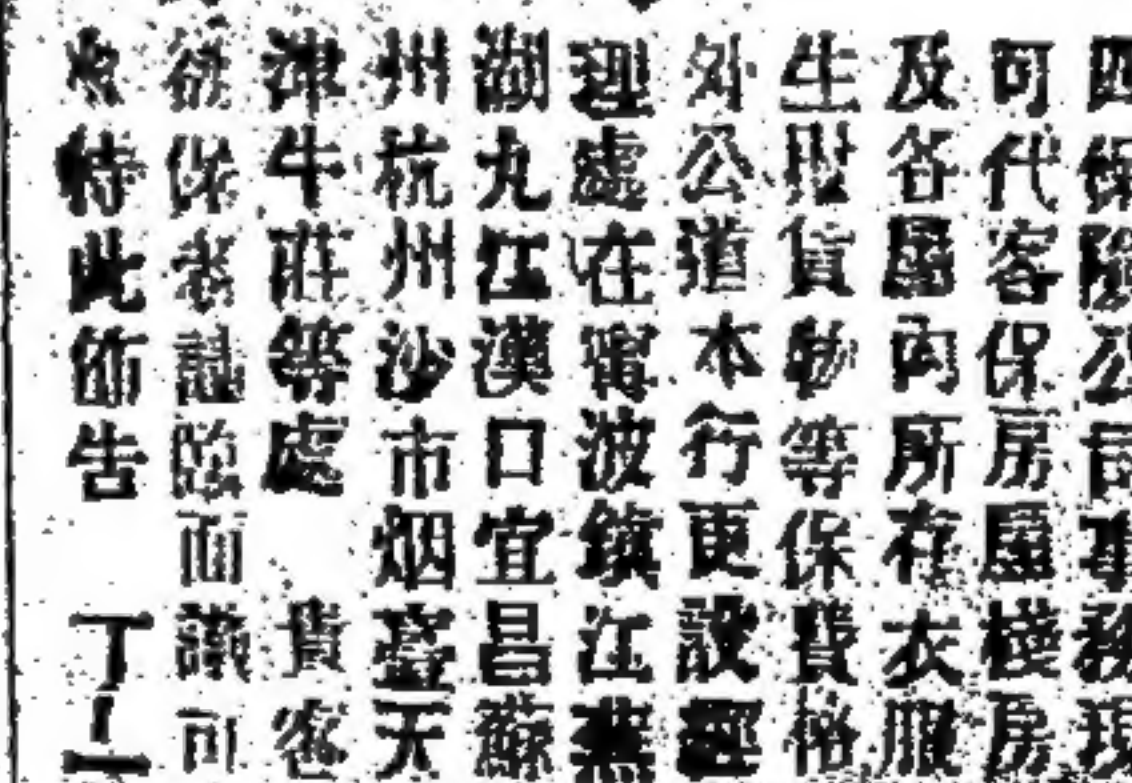 四保險公司事務現
可代客保房屋棧房
及各屋內所存衣服
生財貨物等保費格
外公道本行更設經
理處在甯波鎮江蕪
湖九江漢口宜昌蘇
州杭州沙市烟臺天
津牛莊等處 貴客
欲保者請臨面議可
也特此佈告 丁